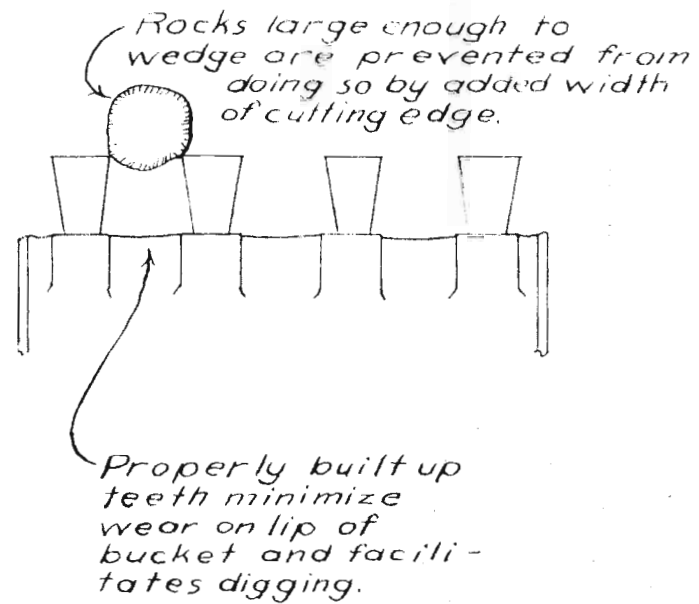 Rocks large enough to
wedge are prevented from
doing so by added width
of cutting edge.
Properly built up
teeth minimize
wear on lip of
bucket and facili-
tates digging.